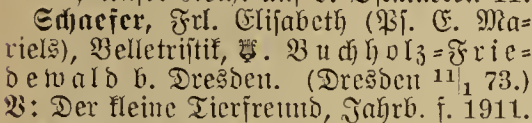 Schaefer, Frl. Elisabeth (Ps. E. Ma-
riels), Belletristik, Buchholz-Frie-
dewald b. Dresden. (Dresden 11|1 73.)
V: Der kleine Tierfreund, Jahrb. f. 1911.